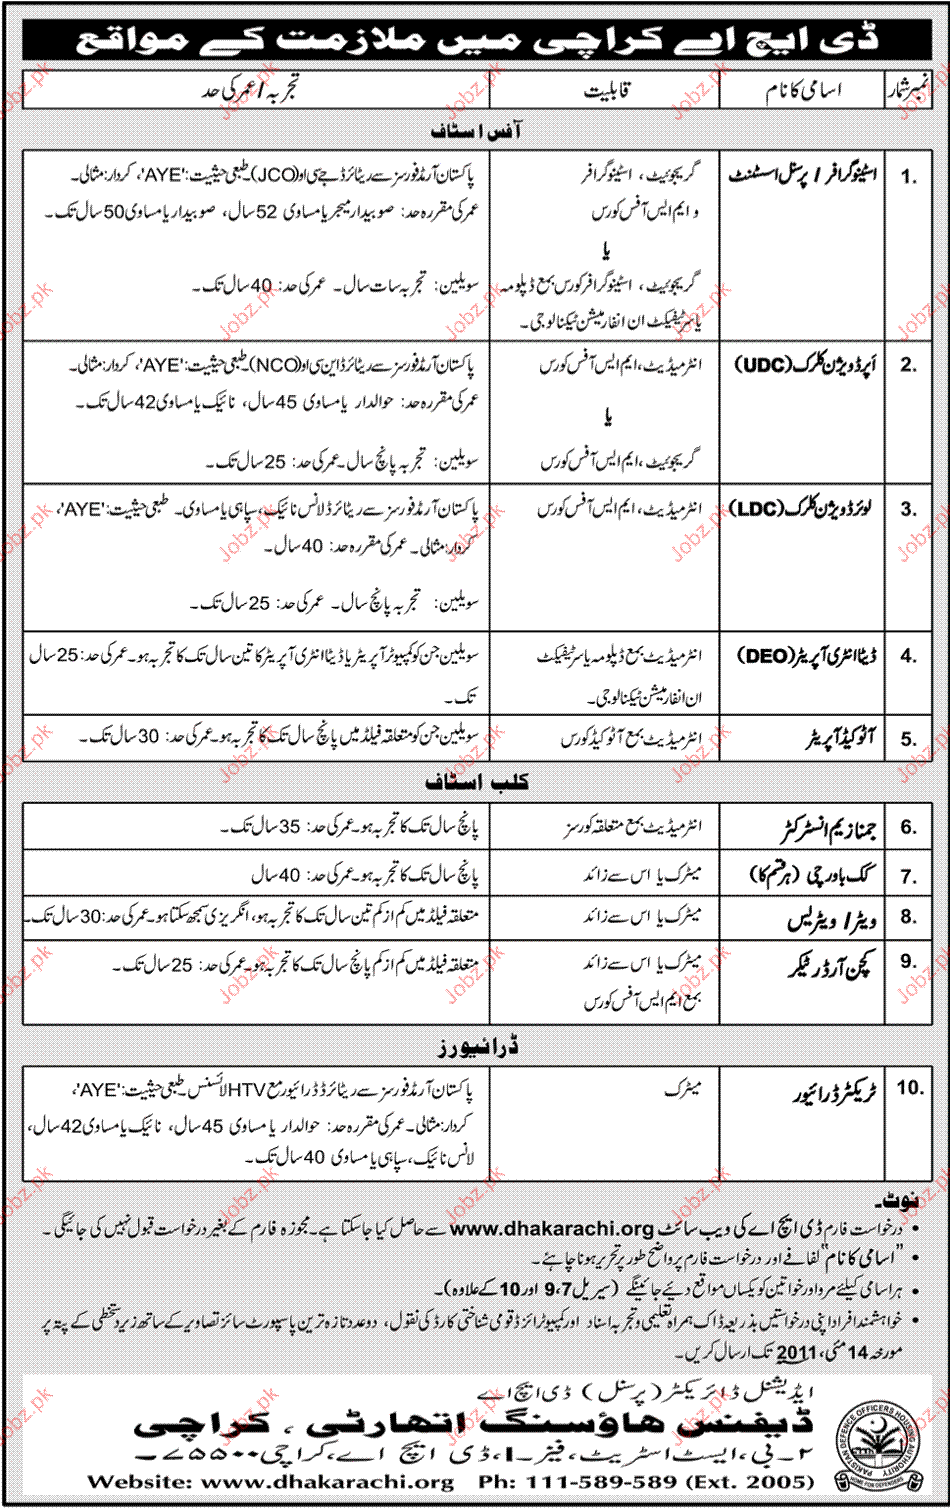 ڈی ایچ اے کراچی میں ملازمت کے مواقع
نمبر شمار
اسامی کا نام
قابلیت
تجربہ/عمر کی حد
آفس اسٹاف
1.
اسٹینوگرافر / پرسنل اسسٹنٹ
گریجویٹ، اسٹینوگرافر
و ایم ایس آفس کورس
یا
گریجویٹ، اسٹینوگرافر کورس بمع ڈپلومہ
یا سرٹیفیکٹ ان انفارمیشن ٹیکنالوجی۔
پاکستان آرمڈ فورسز سے ریٹائرڈ جے سی او (JCO)۔ طبعی حیثیت: 'AYE'، کردار: مثالی۔
عمر کی مقررہ حد: صوبیدار میجر یا مساوی 52 سال، صوبیدار یا مساوی 50 سال تک۔
سویلین: تجربہ سات سال۔ عمر کی حد: 40 سال تک۔
2.
اَپر ڈویژن کلرک (UDC)
انٹرمیڈیٹ، ایم ایس آفس کورس
یا
گریجویٹ، ایم ایس آفس کورس
پاکستان آرمڈ فورسز سے ریٹائرڈ این سی او (NCO)۔ طبعی حیثیت: 'AYE'، کردار: مثالی۔
عمر کی مقررہ حد: حوالدار یا مساوی 45 سال، نائیک یا مساوی 42 سال تک۔
سویلین: تجربہ پانچ سال۔ عمر کی حد: 25 سال تک۔
3.
لوئر ڈویژن کلرک (LDC)
انٹرمیڈیٹ، ایم ایس آفس کورس
پاکستان آرمڈ فورسز سے ریٹائرڈ لانس نائیک، سپاہی یا مساوی۔ طبعی حیثیت: 'AYE'،
کردار: مثالی۔ عمر کی مقررہ حد: 40 سال۔
سویلین: تجربہ پانچ سال۔ عمر کی حد: 25 سال تک۔
4.
ڈیٹا انٹری آپریٹر (DEO)
انٹرمیڈیٹ بمع ڈپلومہ یا سرٹیفکیٹ
ان انفارمیشن ٹیکنالوجی۔
سویلین جن کو کمپیوٹر آپریٹر یا ڈیٹا انٹری آپریٹر کا تین سال تک کا تجربہ ہو۔ عمر کی حد: 25 سال
تک۔
5.
آٹو کیڈ آپریٹر
انٹرمیڈیٹ بمع آٹو کیڈ کورس
سویلین جن کو متعلقہ فیلڈ میں پانچ سال تک کا تجربہ ہو۔ عمر کی حد: 30 سال تک۔
کلب اسٹاف
6.
جمنازیم انسٹرکٹر
انٹرمیڈیٹ بمع متعلقہ کورسز
پانچ سال تک کا تجربہ ہو۔ عمر کی حد: 35 سال تک۔
7.
کک باورچی (ہر قسم کا)
میٹرک یا اس سے زائد
پانچ سال تک کا تجربہ ہو۔ عمر کی حد: 40 سال
8.
ویٹر / ویٹرلیس
میٹرک یا اس سے زائد
متعلقہ فیلڈ میں کم از کم تین سال تک کا تجربہ ہو، انگریزی سمجھ سکتا ہو۔ عمر کی حد: 30 سال تک۔
9.
کچن آرڈر ٹیکر
میٹرک یا اس سے زائد
بمع ایم ایس آفس کورس
متعلقہ فیلڈ میں کم از کم پانچ سال تک کا تجربہ ہو۔ عمر کی حد: 25 سال تک۔
ڈرائیورز
10.
ٹریکٹر ڈرائیور
میٹرک
پاکستان آرمڈ فورسز سے ریٹائرڈ ڈرائیور مع HTV لائسنس۔ طبعی حیثیت: 'AYE'،
کردار: مثالی۔ عمر کی مقررہ حد: حوالدار یا مساوی 45 سال، نائیک یا مساوی 42 سال،
لانس نائیک، سپاہی یا مساوی 40 سال تک۔
نوٹ۔
• درخواست فارم ڈی ایچ اے کی ویب سائٹ www.dhakarachi.org سے حاصل کیا جا سکتا ہے۔ مجوزہ فارم کے بغیر درخواست قبول نہیں کی جائیگی۔
• "اسامی کا نام" لفافے اور درخواست فارم پر واضح طور پر تحریر ہونا چاہئے۔
• ہر اسامی کیلئے مرد اور خواتین کو یکساں مواقع دیئے جائینگے (سیریل 7، 9 اور 10 کے علاوہ)۔
• خواہشمند افراد اپنی درخواستیں بذریعہ ڈاک ہمراہ تعلیمی و تجربہ اسناد اور کمپیوٹرائزڈ قومی شناختی کارڈ کی نقول، دو عدد تازہ ترین پاسپورٹ سائز تصاویر کے ساتھ زیر دستخطی کے پتہ پر
مورخہ 14 مئی، 2011 تک ارسال کریں۔
ایڈیشنل ڈائریکٹر (پرسنل) ڈی ایچ اے
ڈیفنس ہاؤسنگ اتھارٹی، کراچی
۲۔بی، ایسٹ اسٹریٹ، فیز-I، ڈی ایچ اے، کراچی ۷۵۵۰۰
Website: www.dhakarachi.org Ph: 111-589-589 (Ext. 2005)
PAKISTAN DEFENCE OFFICERS HOUSING AUTHORITY
HOME FOR DEFENDERS
Jobz.pk